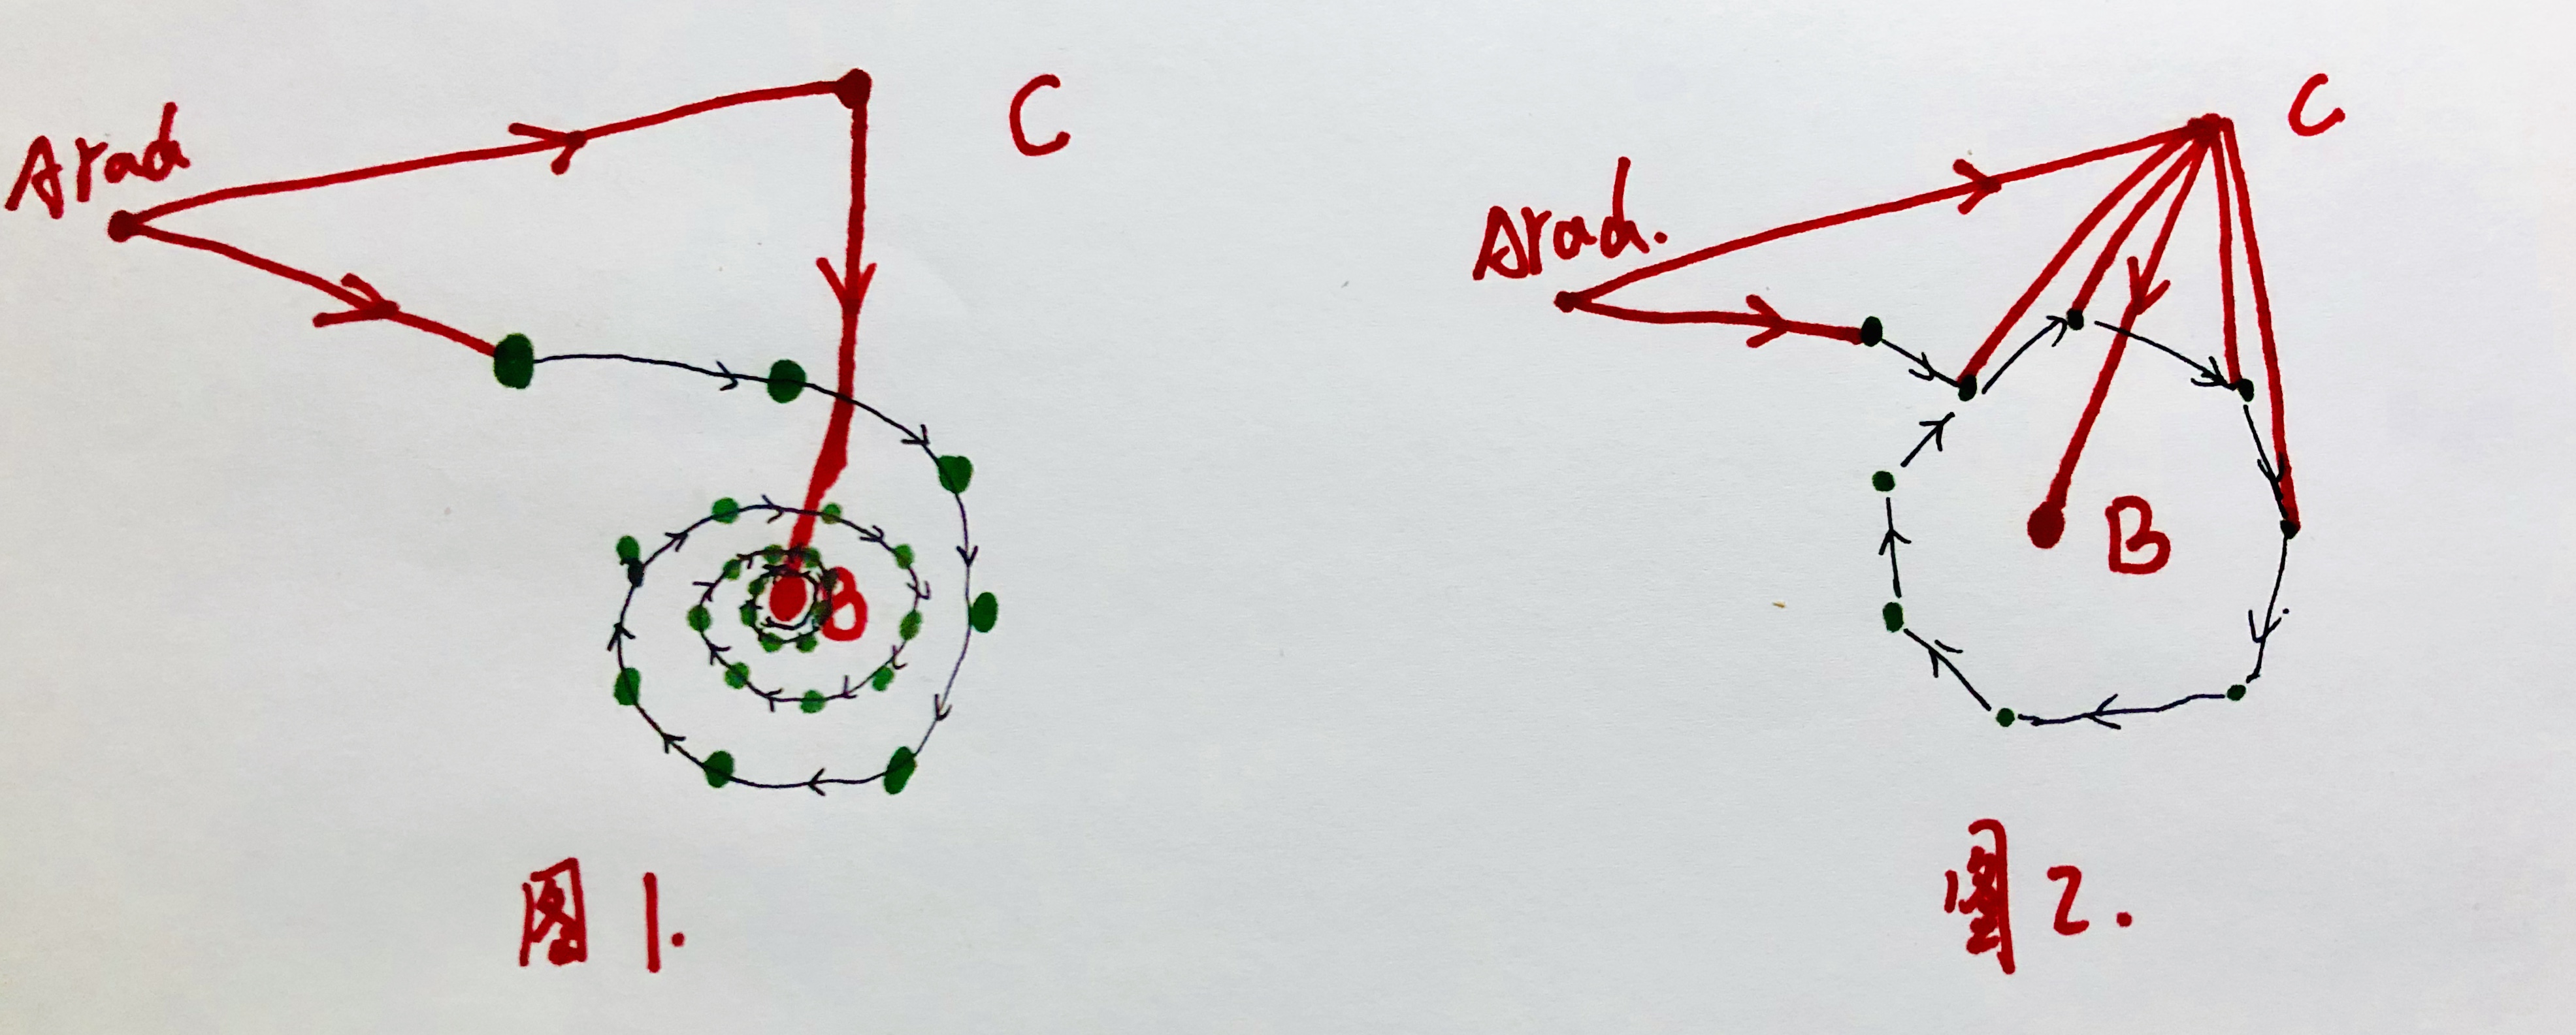 Arad
C
B
图1.
Arad.
C
B
图2.